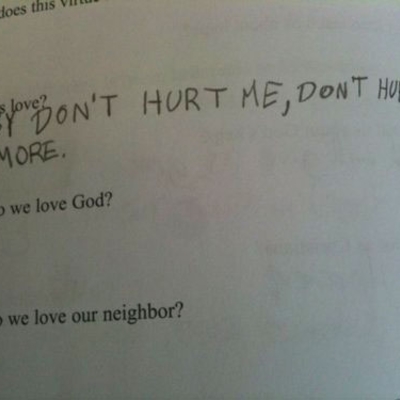 does this virtue
s love?
Y DON'T HURT ME, DON'T HU
MORE.
o we love God?
o we love our neighbor?